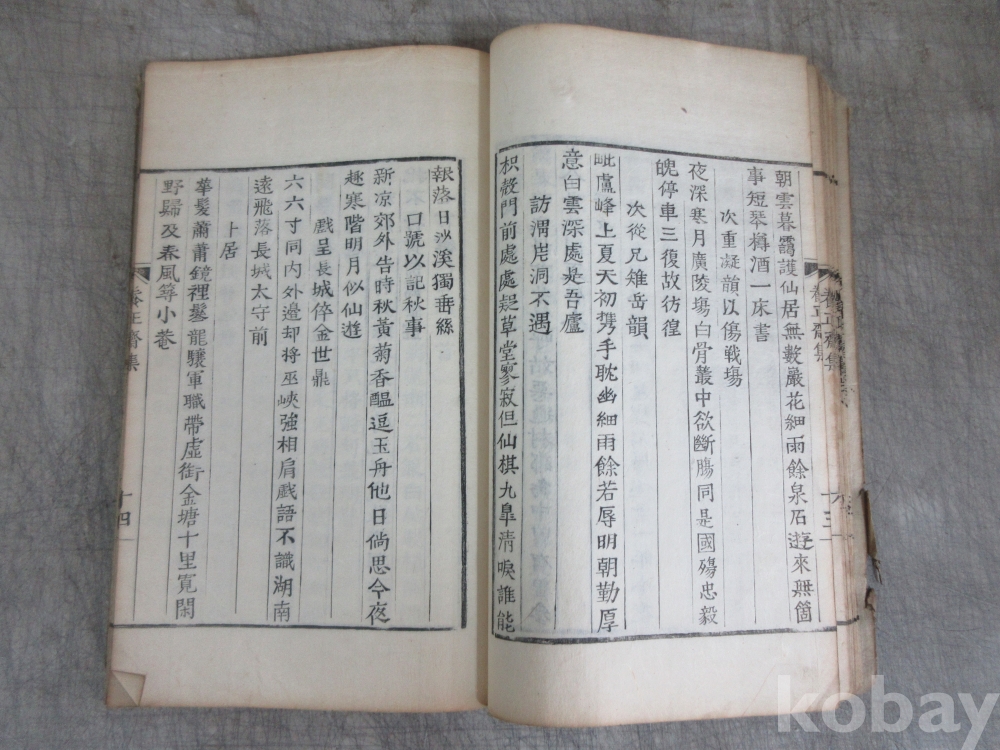 朝雲暮靄護仙居無數巖花細雨餘泉石遊來無箇
事短琴樽酒一床書
次重凝韻以傷戰場
夜深寒月廣陵塲白骨叢中欲斷膓同是國殤忠毅
魄停車三復故彷徨
次從兄雉岳韻
毗盧峰上夏天初携手耽幽細雨餘若辱明朝勤厚
意白雲深處是吾廬
訪渭岸洞不遇
枳殼門前處處疑草堂寥寂但仙棋九臯清唳誰能
報落日沙溪獨垂絲
口號以記秋事
新凉郊外告時秋黃菊香醞逗玉舟他日倘思今夜
趣寒階明月似仙遊
戱呈長城倅金世鼎
六六寸同內外邉却將巫峽強相肩戱語不識湖南
遠飛落長城太守前
卜居
華髮蕭蕭鏡裡鬖龍驤軍職帶虛銜金塘十里寬閑
野歸及春風築小菴
養正齋集
十三
十四
kobay